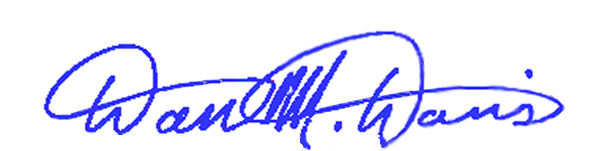 Dan M. Davis